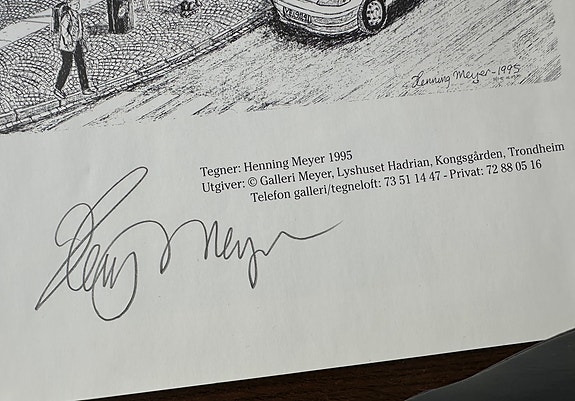 Henning Meyer-1995
Tegner: Henning Meyer 1995
Utgiver: © Galleri Meyer, Lyshuset Hadrian, Kongsgården, Trondheim
Telefon galleri/tegneloft: 73 51 14 47 - Privat: 72 88 05 16
Henning Meyer